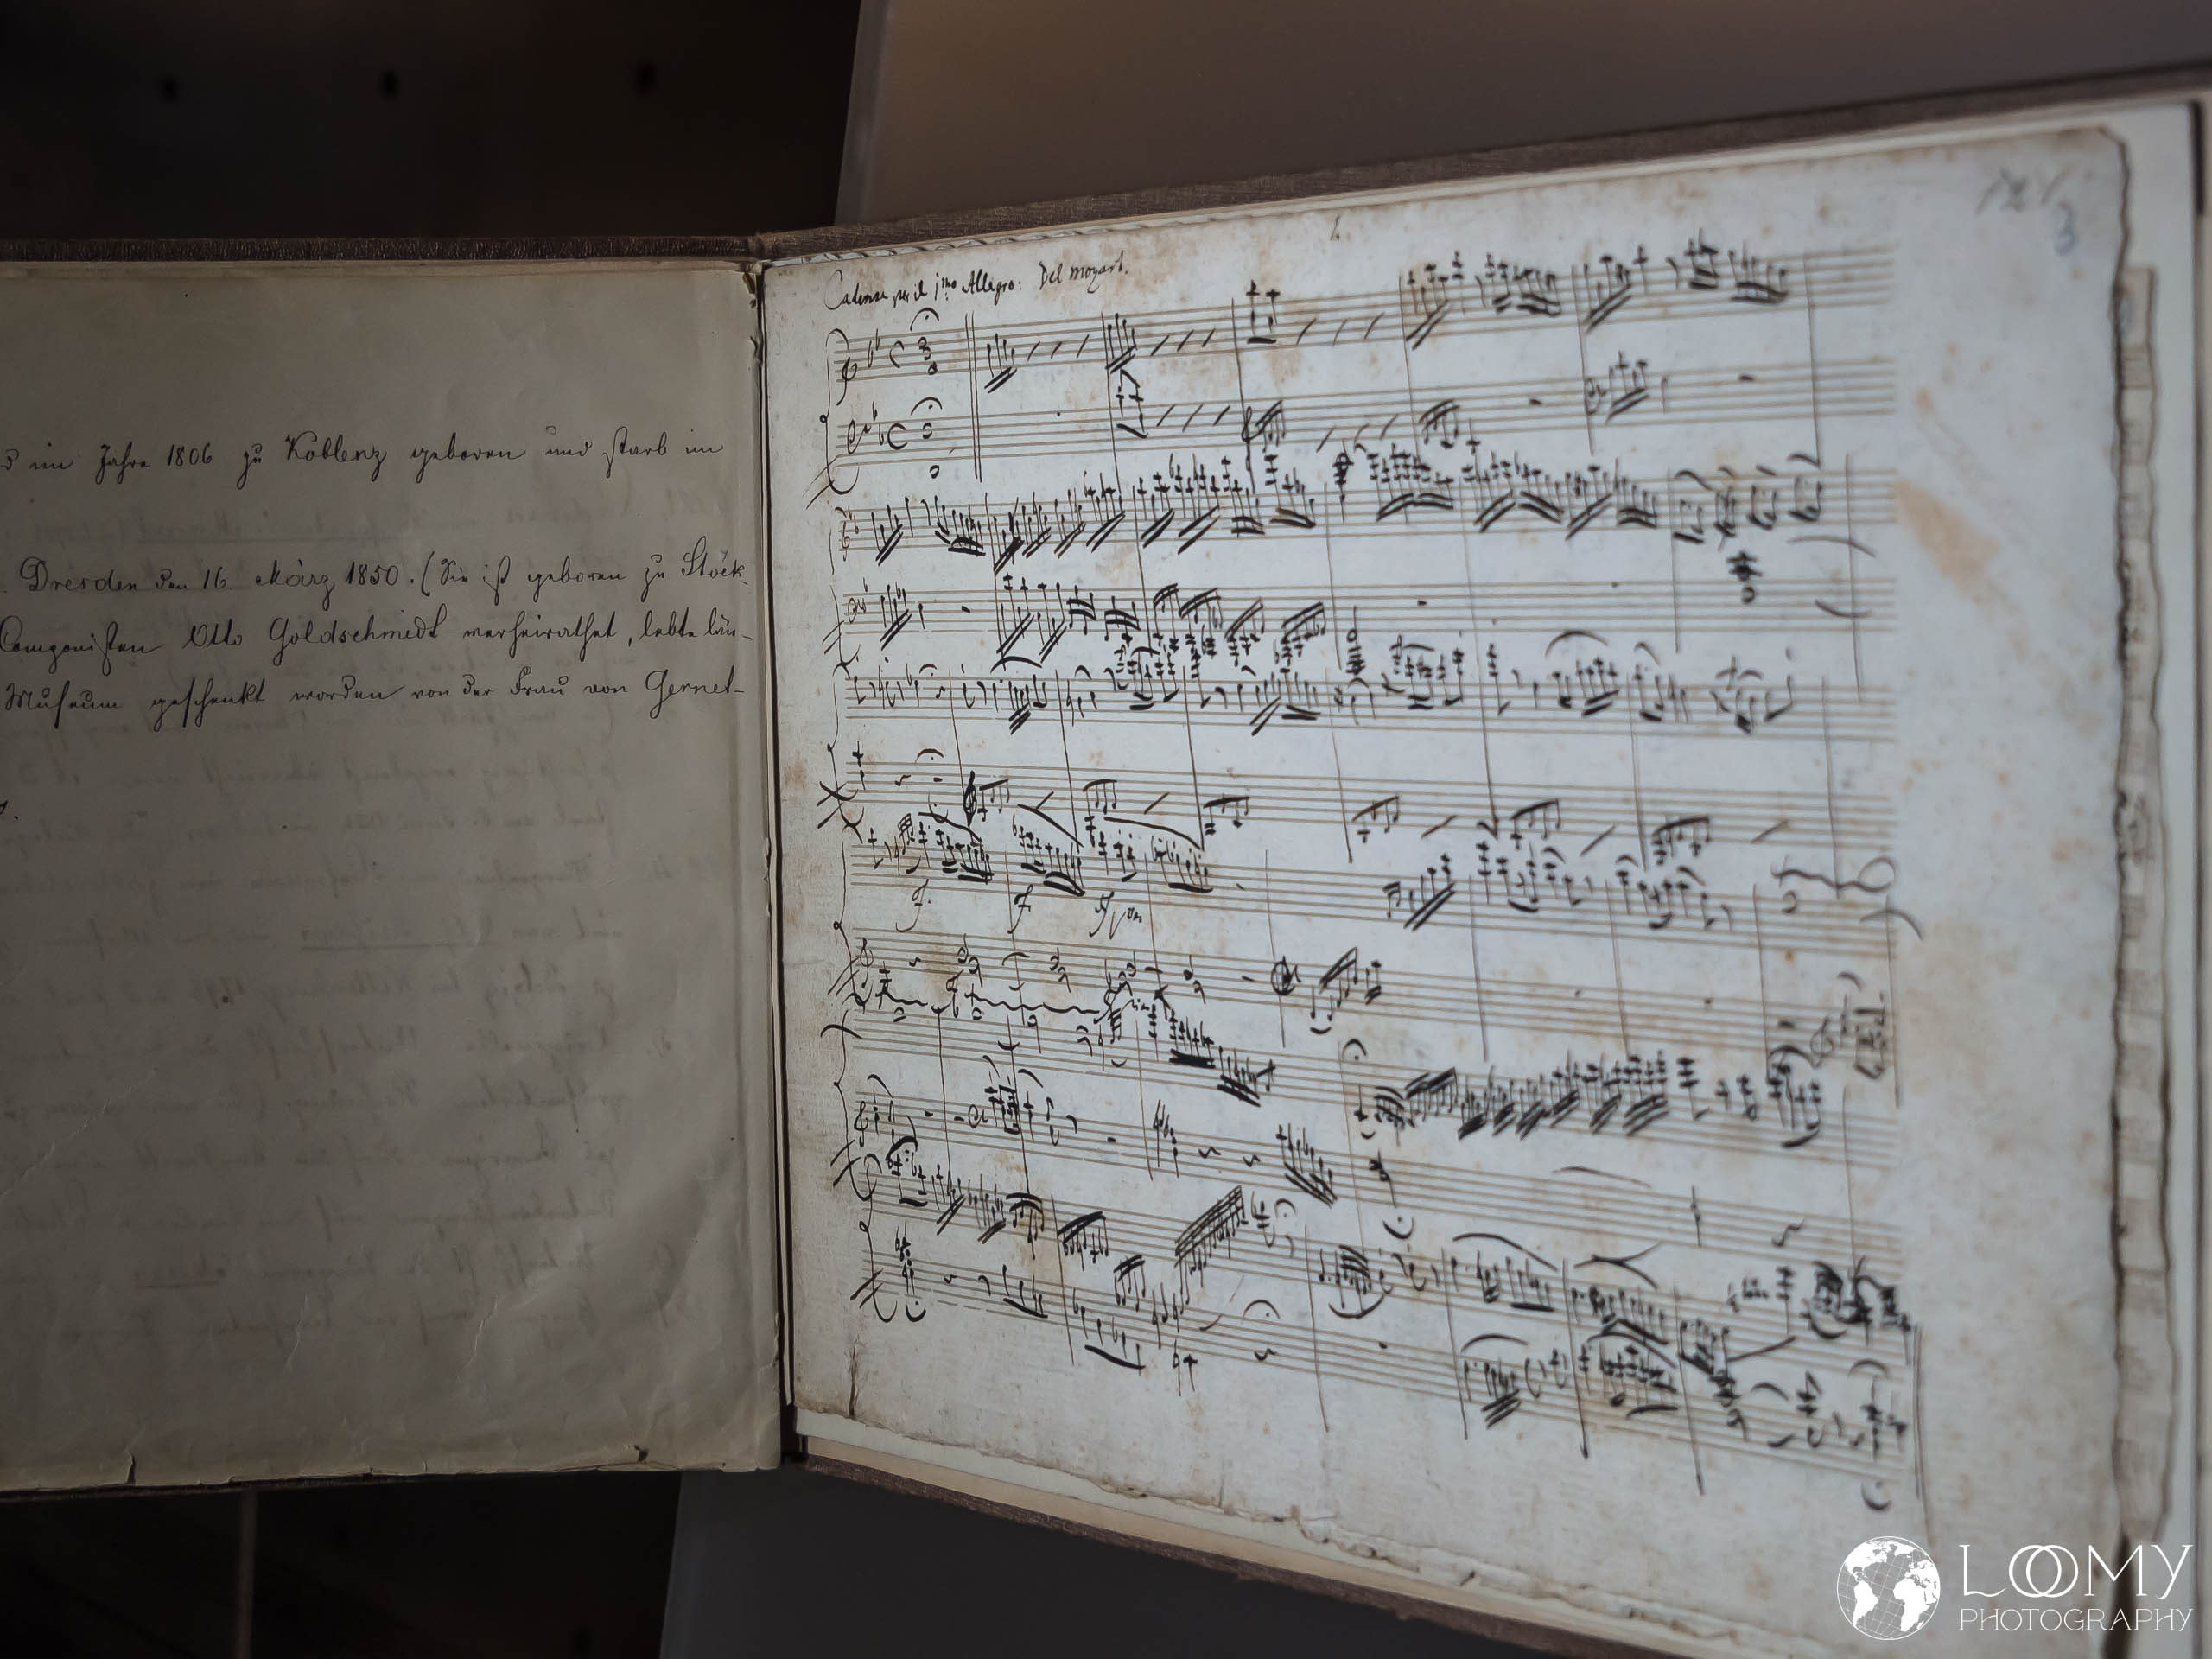 im Jahre 1806 zu Koblenz geboren und starb im
Dresden den 16 März 1850. (Sie ist geboren zu Stock-
Componisten Otto Goldschmidt verheirathet, lebte län-
Museum geschenkt worden von der Frau von Gernet-
Cadenza per il jmo Allegro: Del mozart.
1.
121
3
f.
f.
LOOMY
PHOTOGRAPHY